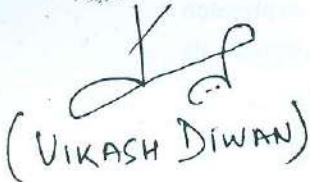 (VIKASH DIWAN)